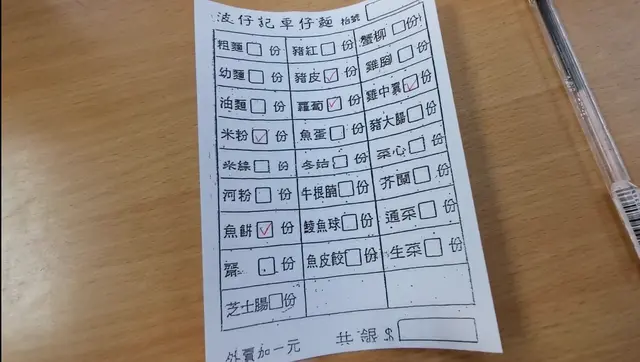 波仔記車仔麵 枱號
粗麵 份 豬紅 份 蟹柳 份
幼麵 份 豬皮 ✓ 份 雞腳 份
油麵 份 蘿蔔 ✓ 份 雞中翼 ✓ 份
米粉 ✓ 份 魚蛋 份 豬大腸 份
米線 份 冬菇 份 菜心 份
河粉 份 牛根腩 份 芥蘭 份
魚餅 ✓ 份 鯪魚球 份 通菜 份
齋 份 魚皮餃 份 生菜 份
芝士腸 份
外賣加一元 共銀 $